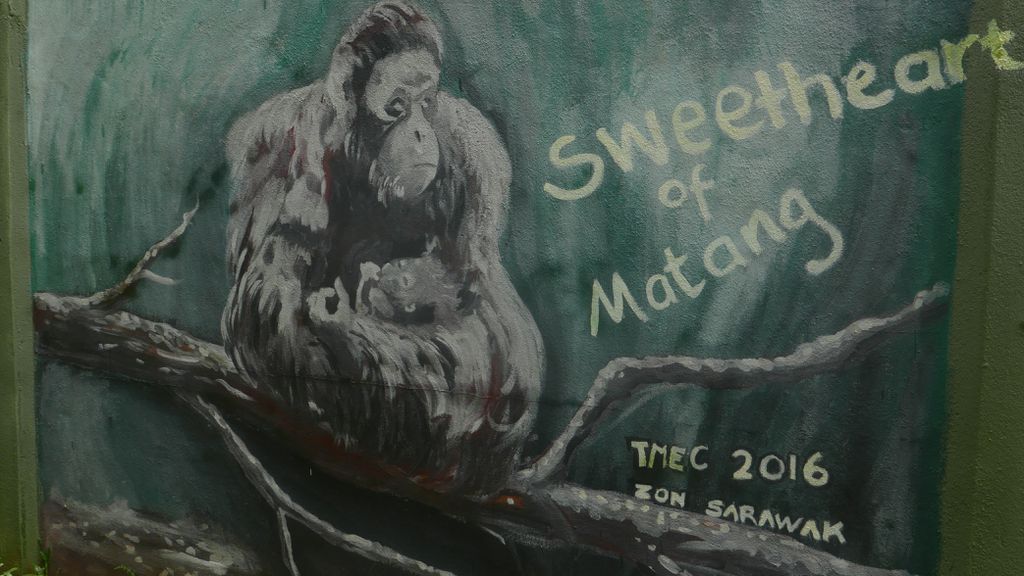 Sweetheart
of
Matang
TMEC 2016
ZON SARAWAK